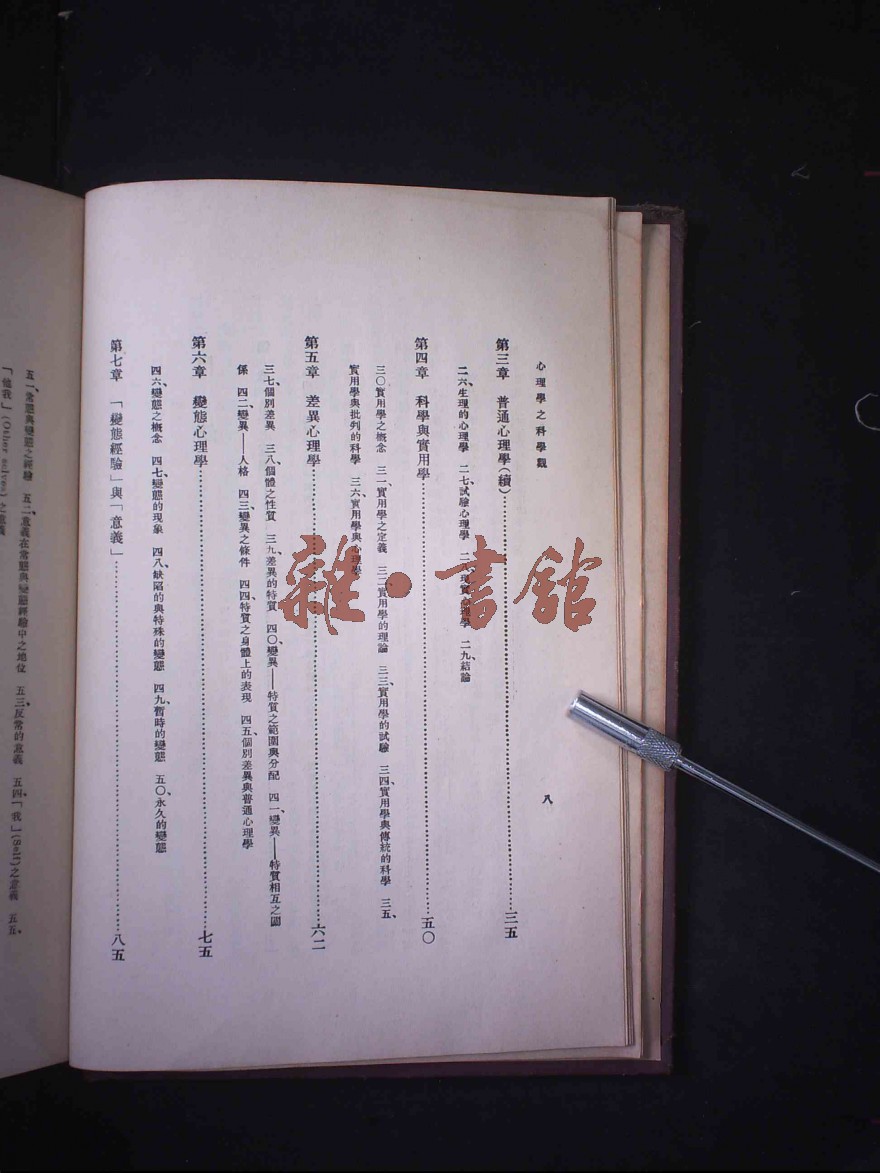 心理學之科學觀
八
第三章　普通心理學(續)……………………三五
二六、生理的心理學　二七、試驗心理學　二八、現實心理學　二九、結論
第四章　科學與實用學……………………五〇
三〇、實用學之概念　三一、實用學之定義　三二、實用學的理論　三三、實用學的試驗　三四、實用學與傳統的科學　三五、
實用學與批判的科學　三六、實用學與心理學
第五章　差異心理學……………………六二
三七、個別差異　三八、個體之性質　三九、差異的特質　四〇、變異——特質之範圍與分配　四一、變異——特質相互之關
係　四二、變異——人格　四三、變異之條件　四四、特質之身體上的表現　四五、個別差異與普通心理學
第六章　變態心理學……………………七五
四六、變態之概念　四七、變態的現象　四八、缺陷的與特殊的變態　四九、暫時的變態　五〇、永久的變態
第七章　「變態經驗」與「意義」……………………八五
五一、常態與變態之經驗　五二、意義在常態與變態經驗中之地位　五三、反常的意義　五四、「我」(Self)之意義　五五、
「他我」(Other selves)之意義
雜·書館